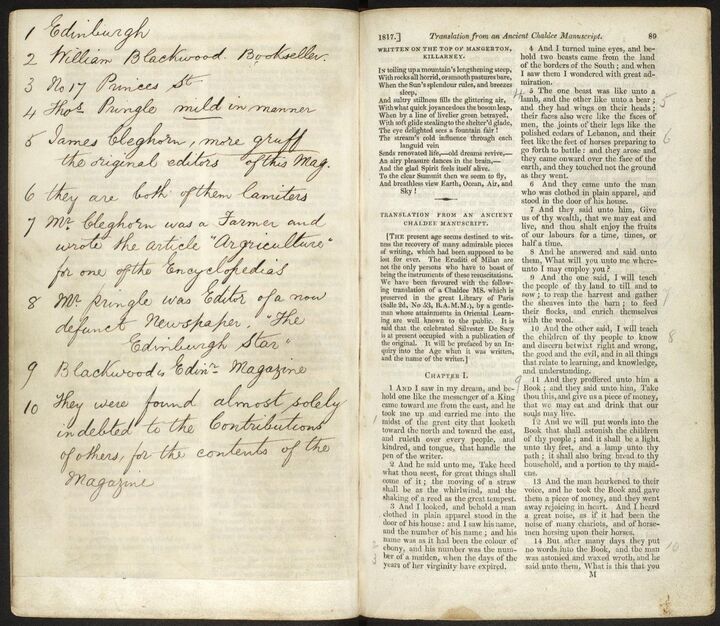 1 Edinburgh
2 William Blackwood. Bookseller.
3 No 17 Princes St
4 Thos. Pringle mild in manner
5 James Cleghorn, more gruff
the original editors of this Mag.
6 they are both of them lamiters
7 Mr. Cleghorn was a Farmer and
wrote the article "Argriculture"
for one of the Encyclopedias
8 Mr. pringle was Editor of a now
defunct Newspaper. "The
Edinburgh Star"
9 Blackwoods Edinr. Magazine
10 They were found almost solely
indebted to the Contributions
of others, for the contents of the
Magazine
1817.] Translation from an Ancient Chaldee Manuscript. 89
WRITTEN ON THE TOP OF MANGERTON,
KILLARNEY.
IN toiling up a mountain's lengthening steep,
With rocks all horrid, or smooth pastures bare,
When the Sun's splendour rules, and breezes
sleep,
And sultry stillness fills the glittering air,
With what quick joyance does the bosom leap,
When by a line of livelier green betrayed,
With soft glide stealing to the shelter'd glade,
The eye delighted sees a fountain fair!
The stream's cold influence through each
languid vein
Sends renovated life,—old dreams revive,—
An airy pleasure dances in the brain,—
And the glad Spirit feels itself alive.
To the clear Summit then we seem to fly,
And breathless view Earth, Ocean, Air, and
Sky!
TRANSLATION FROM AN ANCIENT
CHALDEE MANUSCRIPT.
[THE present age seems destined to wit-
ness the recovery of many admirable pieces
of writing, which had been supposed to be
lost for ever. The Eruditi of Milan are
not the only persons who have to boast of
being the instruments of these resuscitations.
We have been favoured with the follow-
ing translation of a Chaldee MS. which is
preserved in the great Library of Paris
(Salle 2d, No 53, B.A.M.M.), by a gentle-
man whose attainments in Oriental Learn-
ing are well known to the public. It is
said that the celebrated Silvester De Sacy
is at present occupied with a publication of
the original. It will be prefaced by an In-
quiry into the Age when it was written,
and the name of the writer.]
CHAPTER I.
1 AND I saw in my dream, and be-
hold one like the messenger of a King
came toward me from the east, and he
took me up and carried me into the
midst of the great city that looketh
toward the north and toward the east,
and ruleth over every people, and
kindred, and tongue, that handle the
pen of the writer.
2 And he said unto me, Take heed
what thou seest, for great things shall
come of it; the moving of a straw
shall be as the whirlwind, and the
shaking of a reed as the great tempest.
3 And I looked, and behold a man
clothed in plain apparel stood in the
door of his house: and I saw his name,
and the number of his name; and his
name was as it had been the colour of
ebony, and his number was the num-
ber of a maiden, when the days of the
years of her virginity have expired.
4 And I turned mine eyes, and be-
hold two beasts came from the land
of the borders of the South; and when
I saw them I wondered with great ad-
miration.
5 The one beast was like unto a
lamb, and the other like unto a bear;
and they had wings on their heads;
their faces also were like the faces of
men, the joints of their legs like the
polished cedars of Lebanon, and their
feet like the feet of horses preparing to
go forth to battle: and they arose and
they came onward over the face of the
earth, and they touched not the ground
as they went.
6 And they came unto the man
who was clothed in plain apparel, and
stood in the door of his house.
7 And they said unto him, Give
us of thy wealth, that we may eat and
live, and thou shalt enjoy the fruits
of our labours for a time, times, or
half a time.
8 And he answered and said unto
them, What will you unto me where-
unto I may employ you?
9 And the one said, I will teach
the people of thy land to till and to
sow; to reap the harvest and gather
the sheaves into the barn; to feed
their flocks, and enrich themselves
with the wool.
10 And the other said, I will teach
the children of thy people to know
and discern betwixt right and wrong,
the good and the evil, and in all things
that relate to learning, and knowledge,
and understanding.
11 And they proffered unto him a
Book; and they said unto him, Take
thou this, and give us a piece of money,
that we may eat and drink that our
souls may live.
12 And we will put words into the
Book that shall astonish the children
of thy people; and it shall be a light
unto thy feet, and a lamp unto thy
path; it shall also bring bread to thy
household, and a portion to thy maid-
ens.
13 And the man hearkened to their
voice, and he took the Book and gave
them a piece of money, and they went
away rejoicing in heart. And I heard
a great noise, as if it had been the
noise of many chariots, and of horse-
men horsing upon their horses.
14 But after many days they put
no words into the Book, and the man
was astonied and waxed wroth, and he
said unto them, What is this that you
M